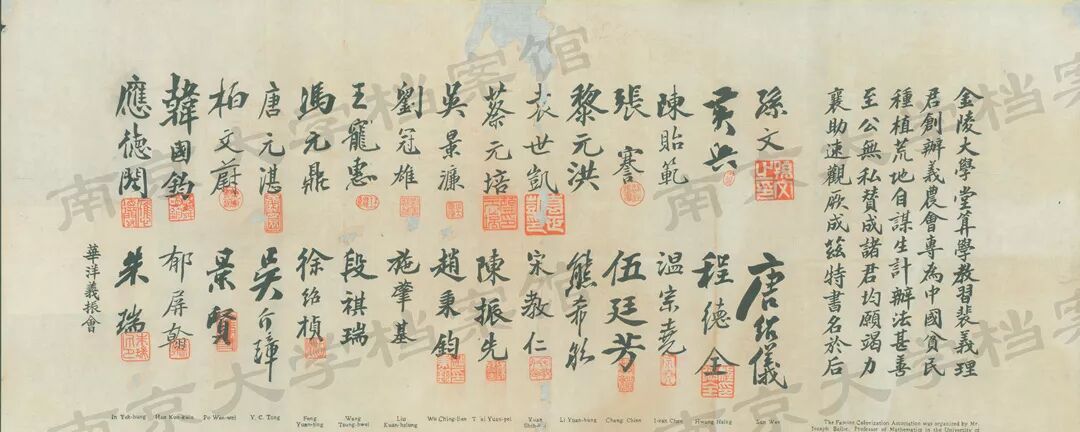 金陵大學堂算學教習裴義理
君創辦義農會專為中國貧民
種植荒地自謀生計辦法甚善
至公無私贊成諸君均願竭力
襄助速觀厥成茲特書名於后
孫文
唐紹儀
黃興
程德全
陳貽範
溫宗堯
張謇
伍廷芳
黎元洪
熊希齡
袁世凱
宋教仁
蔡元培
陳振先
吳景濂
趙秉鈞
劉冠雄
施肇基
王寵惠
段祺瑞
馮元鼎
徐紹楨
唐元湛
吳介璋
柏文蔚
景賢
韓國鈞
郁屏翰
應德閎
朱瑞
華洋義振會
In Teh-hung
Han Kuo-kuin
Po Wen-wei
Y. C. Tong
Fong Yuan-ting
Wang Tsung-hwei
Liu Kuan-hsiung
Wu Ching-lien
T'ai Yuan-pei
Yuan Shih-kai
Li Yuan-hung
Chang Chien
Ivan Chen
Hwang Hsing
Sun Wen
The Famine Colonization Association was organized by Mr.
Joseph Bailie, Professor of Mathematics in the University of
南京大学档案馆
南京大学档案馆